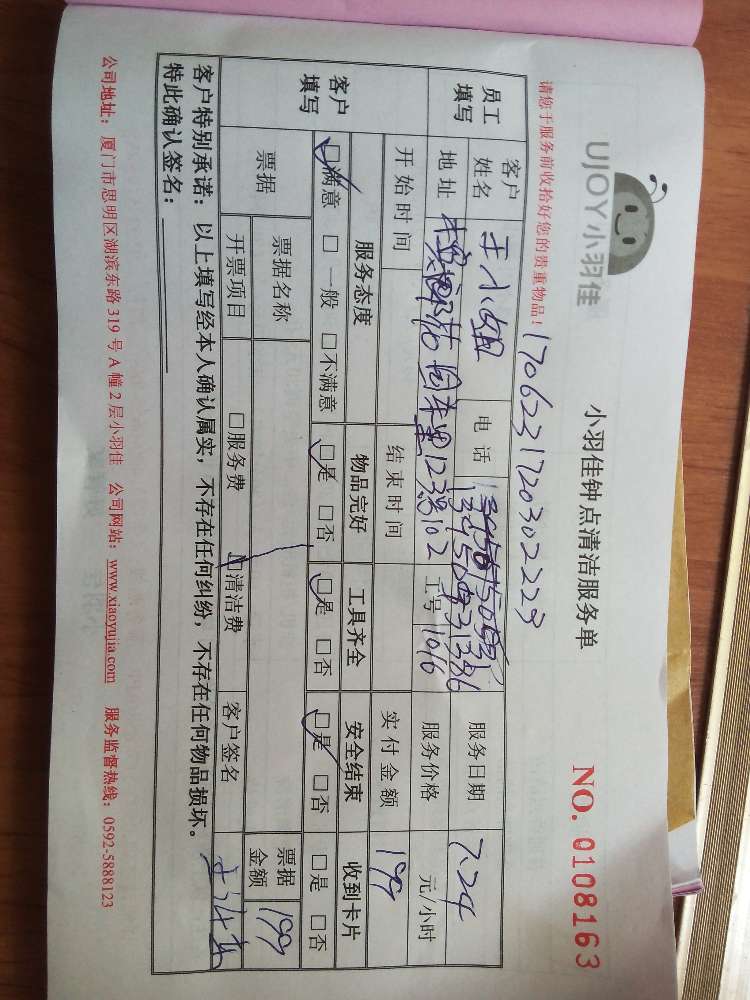 UJOY小羽佳
小羽佳钟点清洁服务单
NO. 0108163
请您于服务前收拾好您的贵重物品！
170623172030222
员工填写
客户姓名 王小姐 电话 服务日期 7.24
地址 12 102 工号 1016 服务价格 元/小时
开始时间 结束时间 实付金额 199
客户填写
服务态度 物品完好 工具齐全 安全结束 收到卡片
□满意 □一般 □不满意 □是 □否 □是 □否 □是 □否 □是 □否
票据 票据名称 票据金额 199
开票项目 □服务费 □清洁费 客户签名
客户特别承诺：以上填写经本人确认属实，不存在任何纠纷，不存在任何物品损坏。
特此确认签名：
公司地址：厦门市思明区湖滨东路 319 号 A 幢 2 层小羽佳 公司网站：www.xiaoyujia.com 服务监督热线：0592-5888123